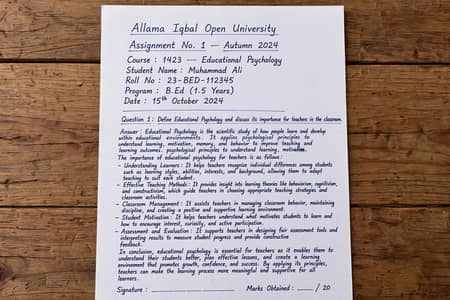 Allama Iqbal Open University
Assignment No. 1 — Autumn 2024
Course : 1423 — Educational Psychology
Student Name : Muhammad Ali
Roll No : 23-BED-112345
Program : B.Ed (1.5 Years)
Date : 15th October 2024
Question 1 : Define Educational Psychology and discuss its importance for teachers in the classroom.
Answer : Educational Psychology is the scientific study of how people learn and develop
within educational environments. It applies psychological principles to
understand learning, motivation, memory, and behavior to improve teaching and
learning outcomes. psychological principles to understand learning,
The importance of educational psychology for teachers is as follows :
- Understanding Learners : It helps teachers recognize individual differences among students
such as learning styles, abilities, interests, and background, allowing them to adapt
teaching to suit each student.
- Effective Teaching Methods : It provides insight into learning theories like behaviorism, cognitivism,
and constructivism, which guide teachers in choosing appropriate teaching strategies and
classroom activities.
- Classroom Management : It assists teachers in managing classroom behavior, maintaining
discipline, and creating a positive and supportive learning environment.
- Student Motivation : It helps teachers understand what motivates students to learn and
how to encourage interest, curiosity, and active participation.
- Assessment and Evaluation : It supports teachers in designing fair assessment tools and
interpreting results to measure student progress and provide constructive
feedback.
In conclusion, educational psychology is essential for teachers as it enables them to
understand their students better, plan effective lessons, and create a learning
environment that promotes growth, confidence, and success. By applying its principles,
teachers can make the learning process more meaningful and supportive for all
learners.
Signature : ____________ Marks Obtained : ____ / 20